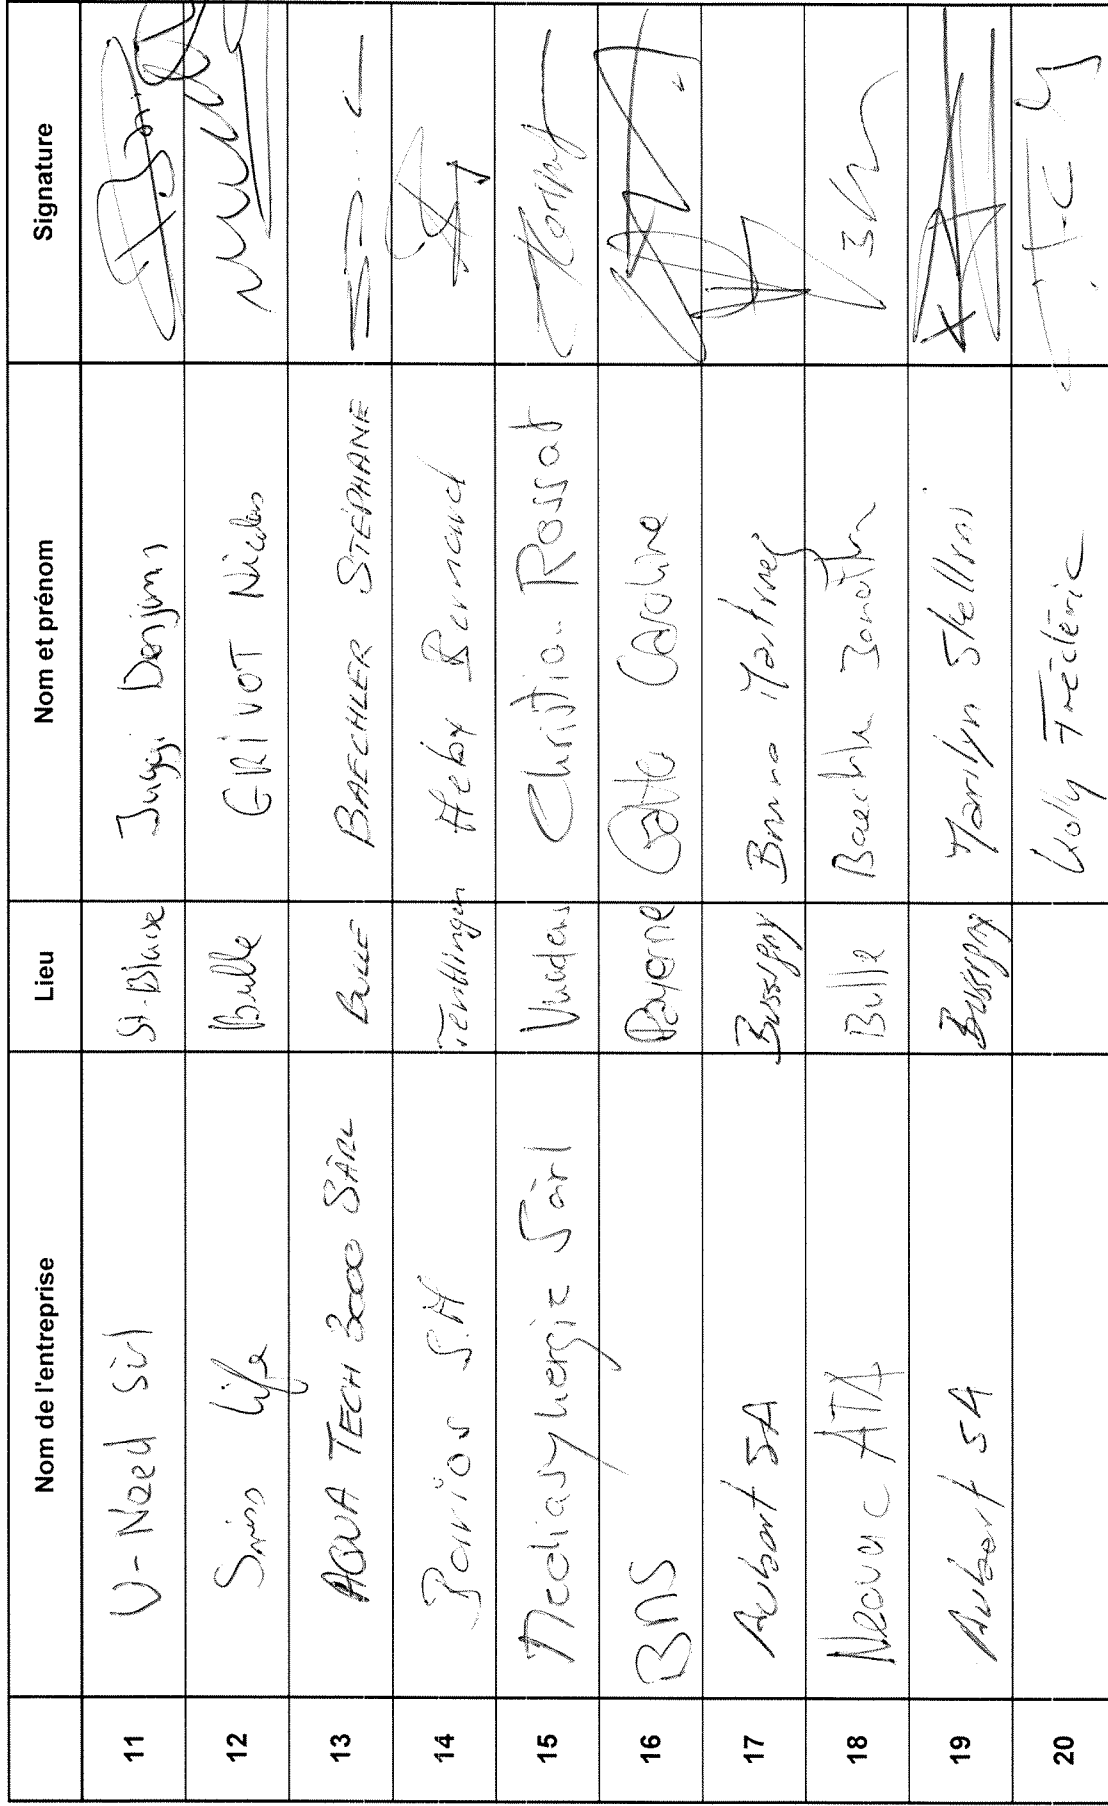 Nom de l'entreprise Lieu Nom et prénom Signature
11 U-Need Sàrl St-Blaise Benjamin
12 Swiss Life Bulle GRIVOT Nicolas
13 AQUA TECH 3000 SÀRL BULLE BAECHLER STÉPHANE
14 S.A Tentlingen Aeby Bernard
15 Mediasynergie Sàrl Vuadens Christian Rossat
16 BNS Payerne Caroline
17 Aubort SA Bussigny Bruno Martinez
18 Neovac ATA Bulle
19 Aubort SA Bussigny Marilyn Stellini
20 Kolly Frédéric